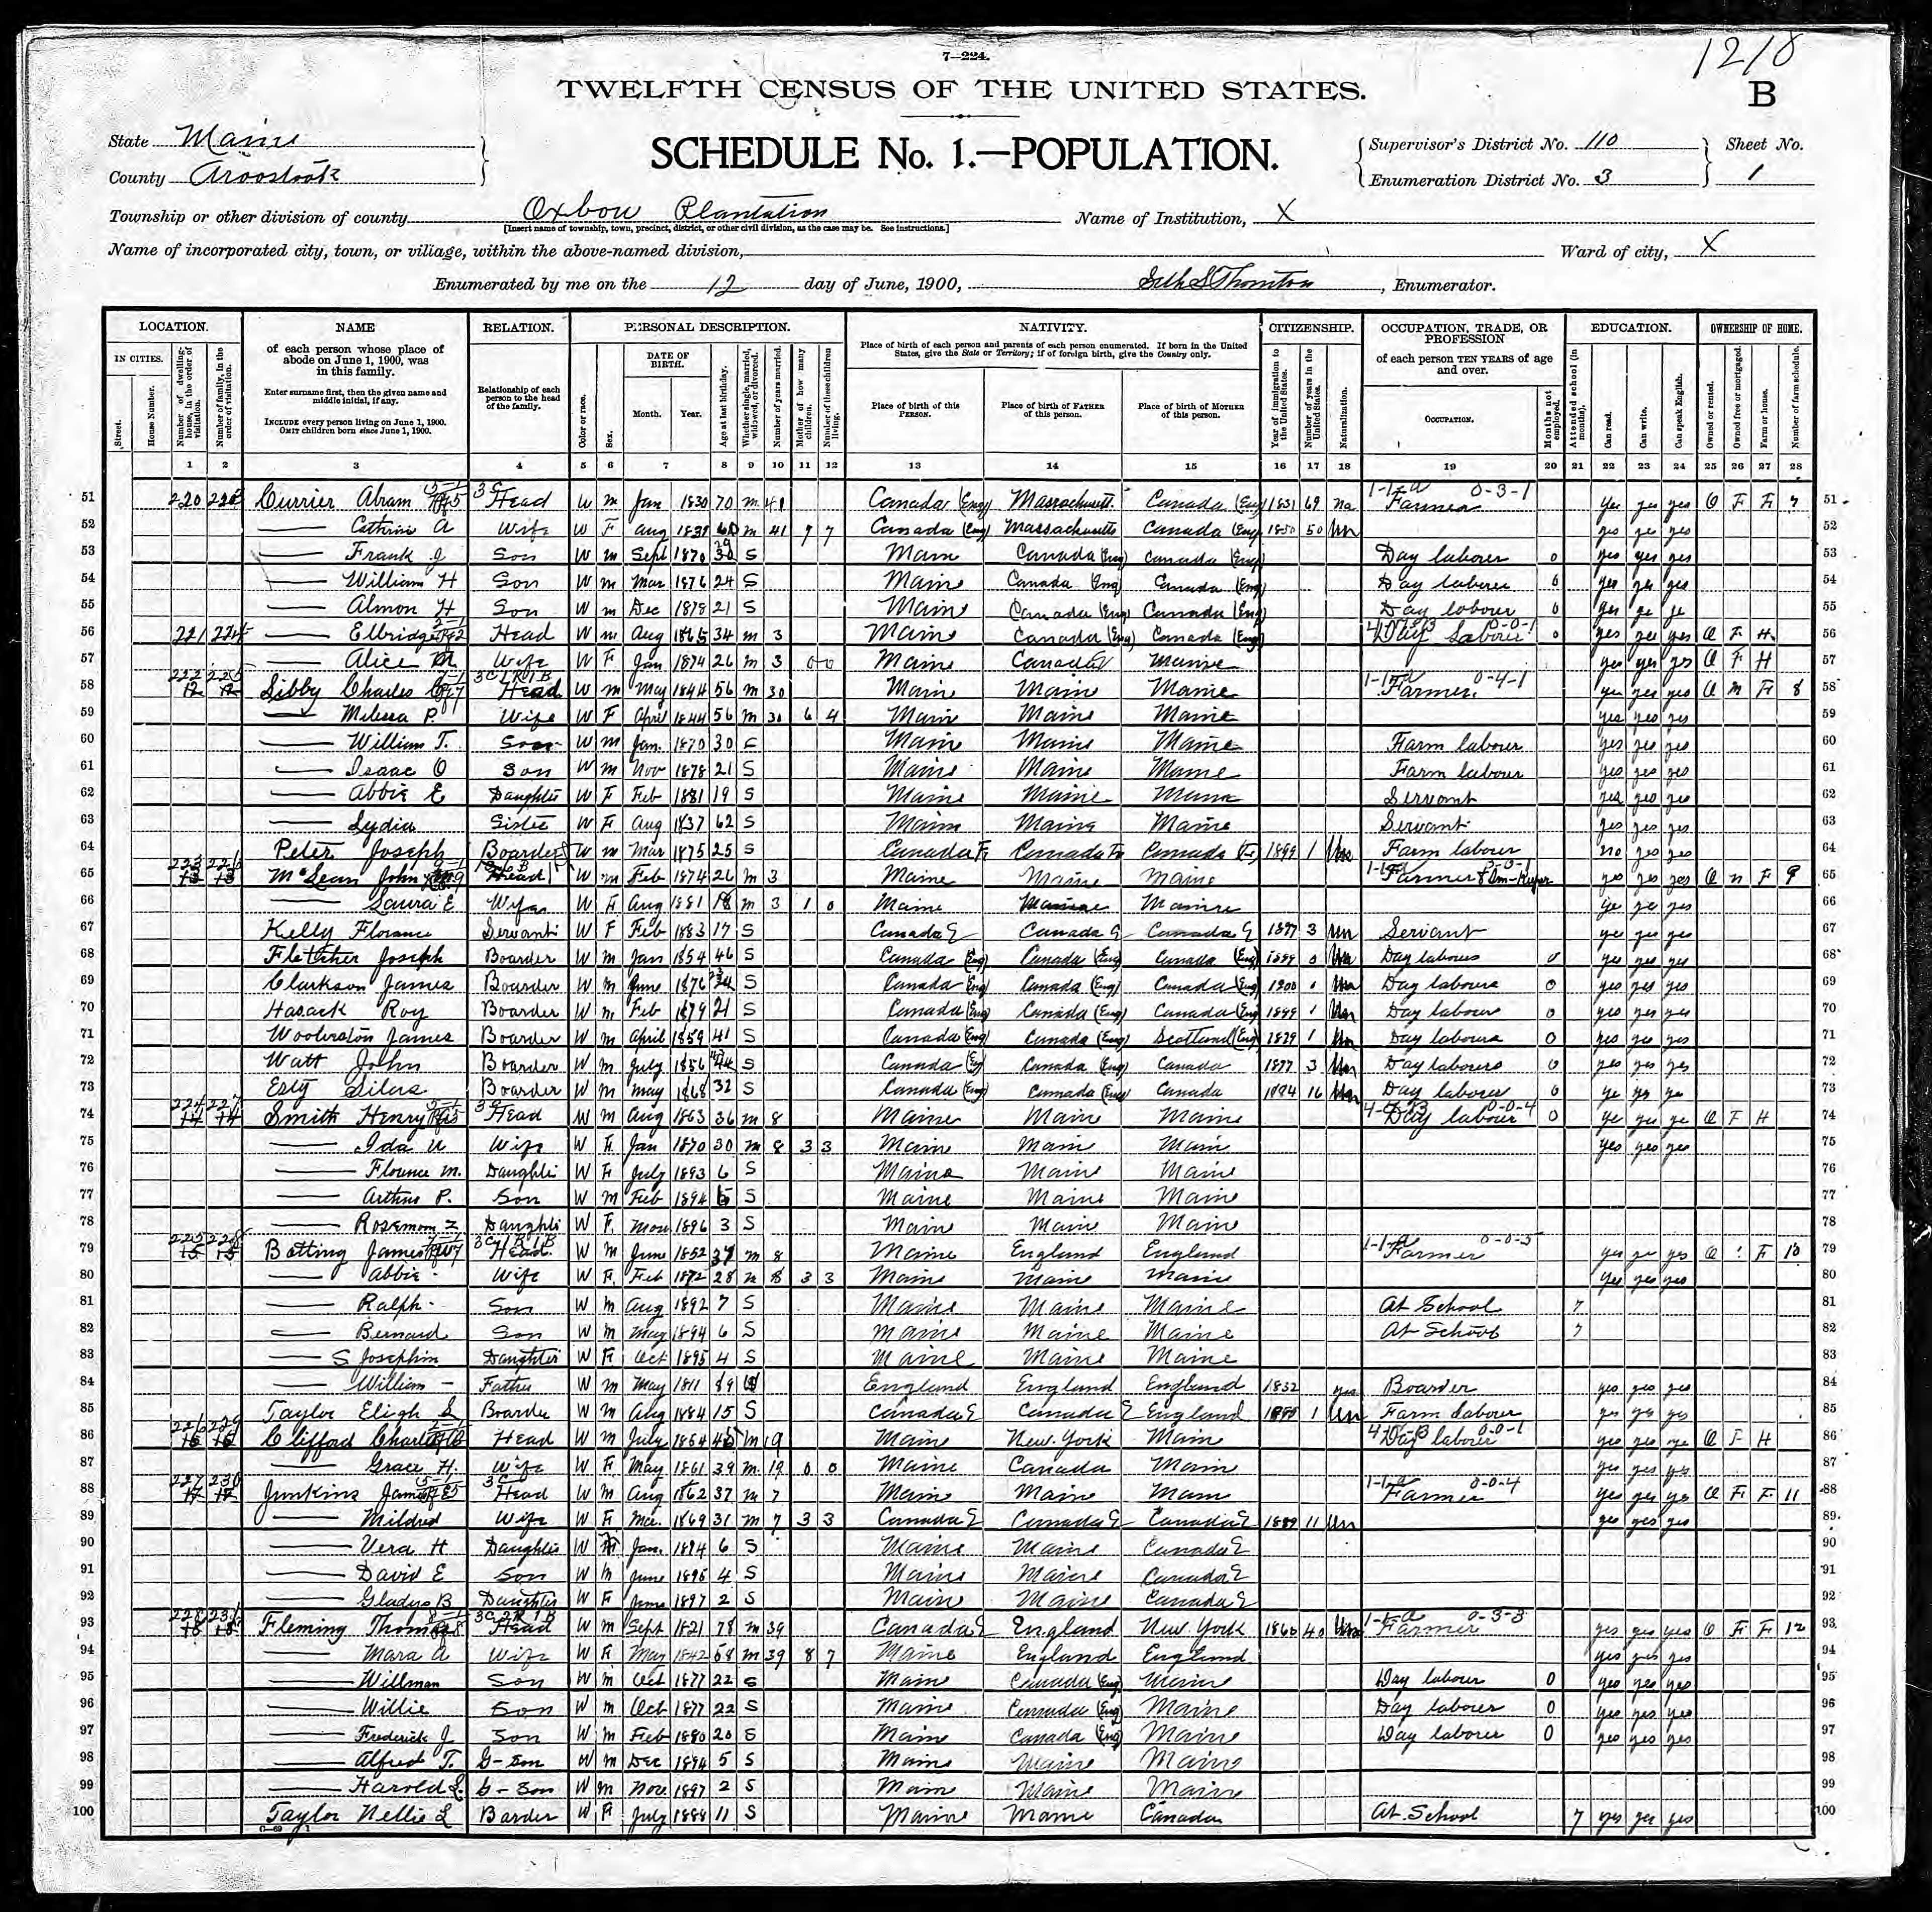 1210
7—224.
TWELFTH CENSUS OF THE UNITED STATES.
B
State Maine
SCHEDULE No. 1.—POPULATION.
Supervisor's District No. 110 Sheet No.
County Aroostook
Enumeration District No. 3 1
Township or other division of county Oxbow Plantation Name of Institution, X
[Insert name of township, town, precinct, district, or other civil division, as the case may be. See instructions.]
Name of incorporated city, town, or village, within the above-named division, Ward of city, X
Enumerated by me on the 12 day of June, 1900, Seth S Thornton, Enumerator.
LOCATION. NAME RELATION. PERSONAL DESCRIPTION. NATIVITY. CITIZENSHIP. OCCUPATION, TRADE, OR PROFESSION EDUCATION. OWNERSHIP OF HOME.
IN CITIES. Street. House Number. Number of dwelling-house, in the order of visitation. Number of family, in the order of visitation.
of each person whose place of abode on June 1, 1900, was in this family.
Enter surname first, then the given name and middle initial, if any.
INCLUDE every person living on June 1, 1900. OMIT children born since June 1, 1900.
Relationship of each person to the head of the family.
Color or race. Sex. DATE OF BIRTH. Month. Year. Age at last birthday. Whether single, married, widowed, or divorced. Number of years married. Mother of how many children. Number of these children living.
Place of birth of each person and parents of each person enumerated. If born in the United States, give the State or Territory; if of foreign birth, give the Country only.
Place of birth of this PERSON. Place of birth of FATHER of this person. Place of birth of MOTHER of this person.
Year of immigration to the United States. Number of years in the United States. Naturalization.
of each person TEN YEARS of age and over.
OCCUPATION. Months not employed.
Attended school (in months). Can read. Can write. Can speak English.
Owned or rented. Owned free or mortgaged. Farm or house. Number of farm schedule.
1 2 3 4 5 6 7 8 9 10 11 12 13 14 15 16 17 18 19 20 21 22 23 24 25 26 27 28
51 220 Currier Abram Head W m Jan 1830 70 m 41 Canada (Eng) Massachusetts Canada (Eng) 1831 69 na Farmer yes yes yes O F F 7 51
52 Cathrin A Wife W F Aug 1839 60 m 41 7 7 Canada (Eng) Massachusetts Canada (Eng) 1850 50 Un yes yes yes 52
53 Frank J Son W m Sept 1870 29 S Main Canada (Eng) Canada (Eng) Day laborer 0 yes yes yes 53
54 William H Son W m Mar 1876 24 S Maine Canada (Eng) Canada (Eng) Day laborer 0 yes yes yes 54
55 Almon H Son W m Dec 1878 21 S Maine Canada (Eng) Canada (Eng) Day labour 0 yes ye ye 55
56 221 Elbridge Head W m Aug 1865 34 m 3 Maine Canada (Eng) Canada (Eng) Day Laborer 0 yes yes yes O F H 56
57 Alice M Wife W F Jan 1874 26 m 3 0 0 Maine Canada Maine yes yes yes O F H 57
58 222 225 Libby Charles C Head W m May 1844 56 m 30 Maine Maine Maine Farmer yes yes yes O m F 8 58
59 Melissa P. Wife W F April 1844 56 m 30 6 4 Main Maine Maine yes yes yes 59
60 William T. Son W m Jan. 1870 30 S Main Maine Maine Farm labour yes yes yes 60
61 Isaac O Son W m Nov 1878 21 S Maine Maine Maine Farm labour yes yes yes 61
62 Abbie E Daughter W F Feb 1881 19 S Maine Maine Maine Servant yes yes yes 62
63 Lydia Sister W F Aug 1837 62 S Maine Maine Maine Servant yes yes yes 63
64 Peter Joseph Boarder W m Mar 1875 25 S Canada Fr Canada Fr Canada Fr 1899 1 Farm laborer no yes yes 64
65 223 226 McLean John Head W m Feb 1874 26 m 3 Maine Maine Maine Farmer yes yes yes O F 9 65
66 Laura E Wife W F Aug 1881 18 m 3 1 0 Maine Maine Maine ye ye yes 66
67 Kelly Florance Servant W F Feb 1883 17 S Canada E Canada E Canada E 1897 3 Un Servant yes yes yes 67
68 Fletcher Joseph Boarder W m Jan 1854 46 S Canada (Eng) Canada (Eng) Canada (Eng) 1899 0 Day labour 0 yes yes yes 68
69 Clarkson James Boarder W m June 1876 S Canada (Eng) Canada (Eng) Canada (Eng) 1900 Day laborer 0 yes yes yes 69
70 Hasack Roy Boarder W m Feb 1879 21 S Canada (Eng) Canada (Eng) Canada (Eng) 1899 1 Un Day labour 0 yes yes yes 70
71 Woolverston James Boarder W m April 1859 41 S Canada (Eng) Canada (Eng) Scotland (Eng) 1899 1 Un Day laborer 0 yes yes yes 71
72 Watt John Boarder W m July 1856 S Canada (E) Canada (Eng) Canada 1897 3 Un Day laborers 0 yes yes yes 72
73 Esty Silas Boarder W m May 1868 32 S Canada (Eng) Canada (Eng) Canada 1884 16 Un Day laborer 0 ye yes ye 73
74 224 227 Smith Henry Head W m Aug 1863 36 m 8 Maine Maine Maine Day laborer 0 ye yes ye O F H 74
75 Ida Wife W F Jan 1870 30 m 8 3 3 Maine Main Main yes yes yes 75
76 Florence M. Daughter W F July 1893 6 S Maine Maine Maine 76
77 Arthur P. Son W m Feb 1894 S Maine Maine Maine 77
78 Daughter W F 1896 3 S Maine Main Maine 78
79 225 228 Botting James Head W m June 1852 m 8 Maine England England Farmer yes ye yes O F 10 79
80 Abbie Wife W F Feb 1872 28 m 8 3 3 Maine Maine Maine yes yes yes 80
81 Ralph Son W m Aug 1892 7 S Maine Maine Maine At School 7 81
82 Bernard Son W m May 1894 6 S Maine Maine Maine At School 7 82
83 S Josephine Daughter W F Oct 1895 4 S Maine Maine Maine 83
84 William Father W m May 1811 89 England England England 1832 yes Boarder yes yes yes 84
85 Taylor Eligh S Boarder W m Aug 1884 15 S Canada E Canada E England 1 Un Farm laborer yes yes yes 85
86 226 229 Clifford Charles Head W m July 1854 45 m 19 Maine New York Main Day laborer yes yes ye O F H 86
87 Grace H. Wife W F May 1861 39 m 19 0 0 Maine Canada Main yes yes yes 87
88 227 230 Junkins James Head W m Aug 1862 37 m 7 Main Maine Main Farmer yes yes ye O F F 11 88
89 Mildred Wife W F Mar 1869 31 m 7 3 3 Canada E Canada E Canada E 1889 11 Un yes yes yes 89
90 Vera H Daughter W F Jan. 1894 6 S Maine Maine Canada E 90
91 David E Son W m June 1895 4 S Maine Maine Canada E 91
92 Gladys B Daughter W F June 1897 2 S Main Maine Canada E 92
93 228 231 Fleming Thomas Head W m Sept 1821 78 m 39 Canada E England New York 1860 40 Farmer yes yes yes O F F 12 93
94 Mara A Wife W F May 1842 58 m 39 8 7 Maine England England yes yes yes 94
95 Willman Son W m Oct 1877 22 S Main Canada (Eng) Maine Day laborer 0 yes yes yes 95
96 Willie Son W m Oct 1877 22 S Maine Canada (Eng) Maine Day laborer 0 yes yes yes 96
97 Frederick J Son W m Feb 1880 20 S Maine Canada (Eng) Maine Day laborer 0 yes yes yes 97
98 Alfred T. G-Son W m Dec 1894 5 S Maine Maine Maine 98
99 Harold L G-Son W m Nov. 1897 2 S Main Maine Maine 99
100 Taylor Nellie L Barder W F July 1888 11 S Maine Maine Canada At School 7 yes yes yes 100